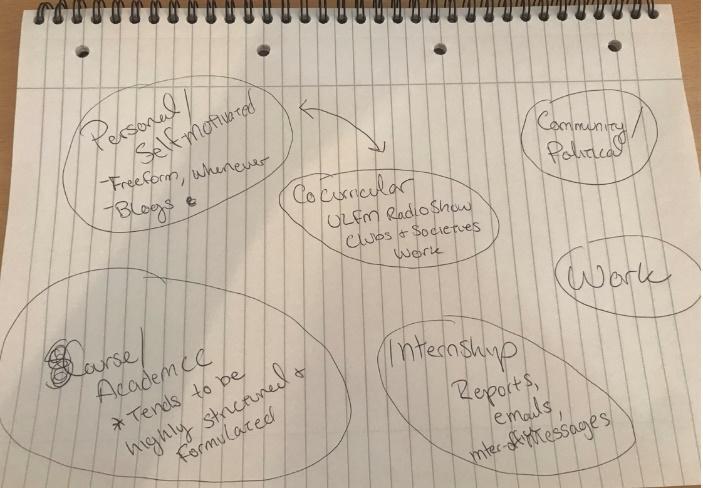 Personal/
Self motivated
-Freeform, whenever
-Blogs
Cocurricular
ULFM Radio Show
Clubs + Societies
Work
Community/
Political
Work
Course/
Academic
* Tends to be
highly structured +
formulated
Internship
Reports,
emails,
inter-office messages